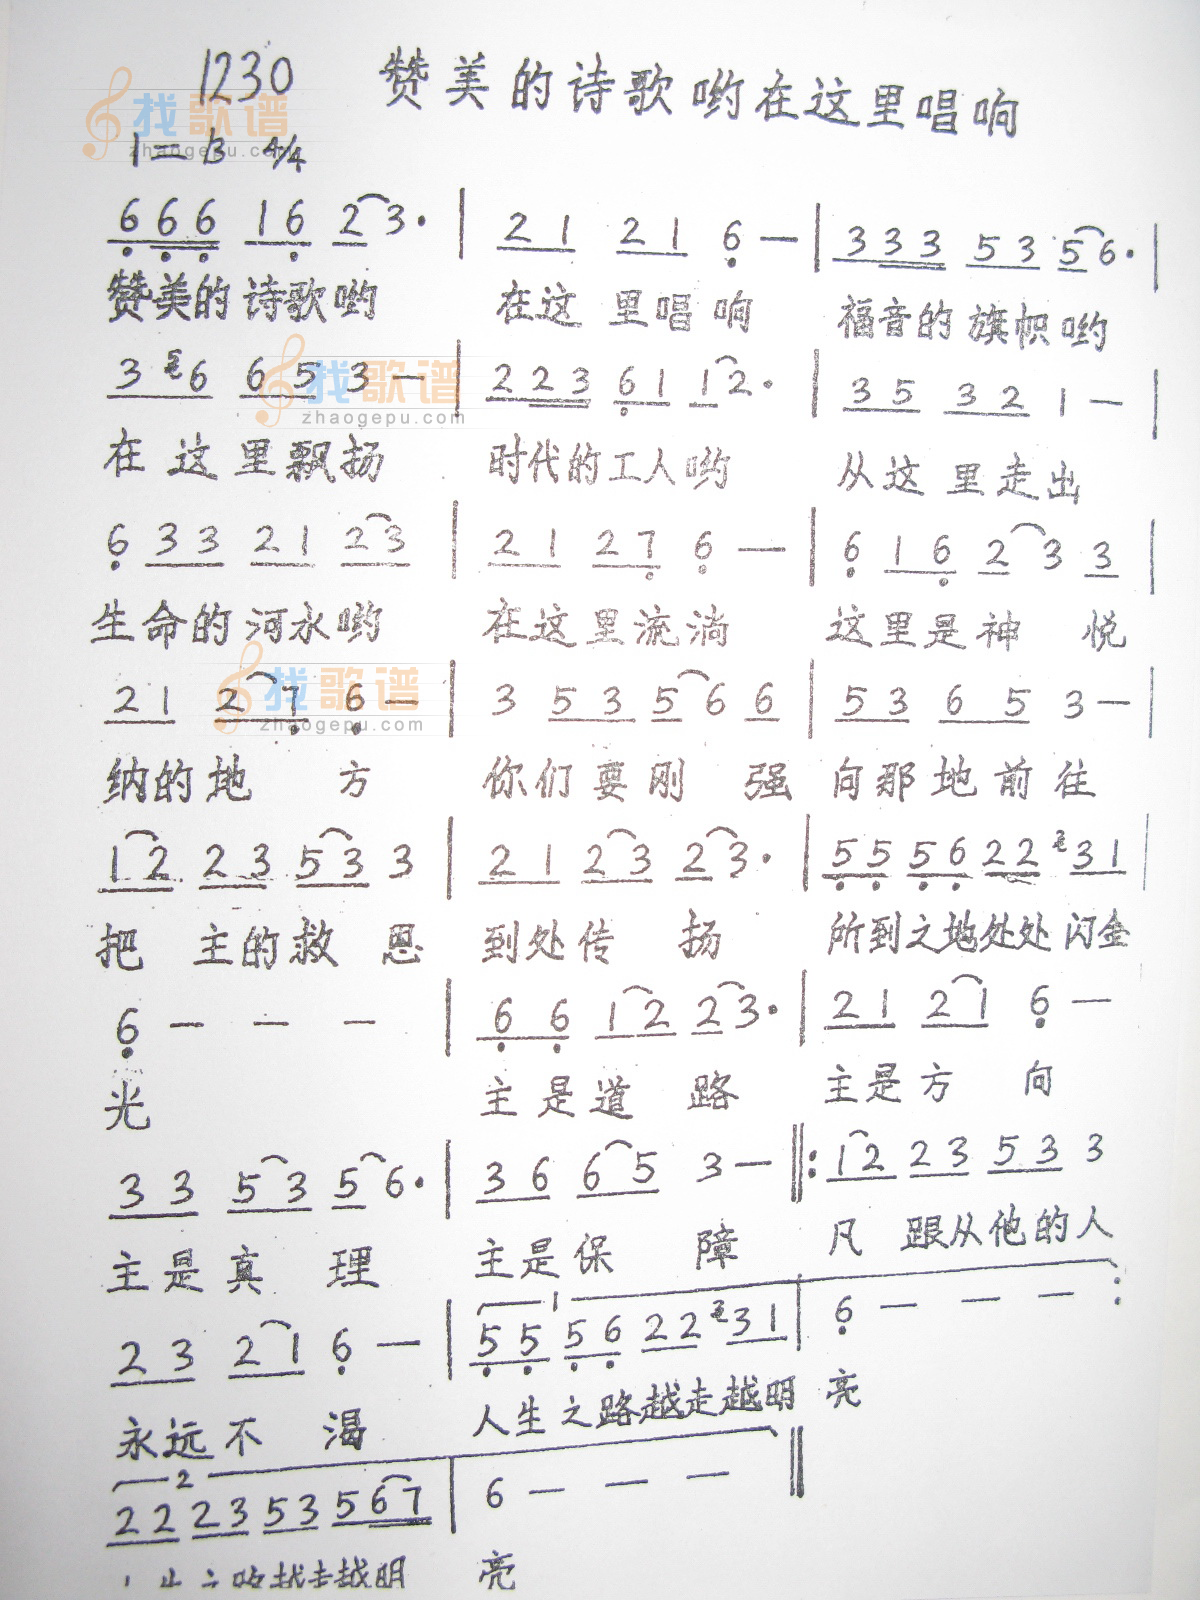 1230 赞美的诗歌哟在这里唱响
1=B 4/4
6 6 6 1 6 2 3· | 2 1 2 1 6 — | 3 3 3 5 3 5 6· |
赞美的诗歌哟 在这里唱响 福音的旗帜哟
3 6 6 6 5 3 — | 2 2 3 6 1 1 2· | 3 5 3 2 1 — |
在这里飘扬 时代的工人哟 从这里走出
6 3 3 2 1 2 3 | 2 1 2 7 6 — | 6 1 6 2 3 3 |
生命的河水哟 在这里流淌 这里是神 悦
2 1 2 7 6 — | 3 5 3 5 6 6 | 5 3 6 5 3 — |
纳的地 方 你们要刚 强 向那地前往
1 2 2 3 5 3 3 | 2 1 2 3 2 3· | 5 5 5 6 2 2 2 3 1 |
把 主的救 恩 到处传 扬 所到之地处处闪金
6 — — — | 6 6 1 2 2 3· | 2 1 2 1 6 — |
光 主是道 路 主是方 向
3 3 5 3 5 6· | 3 6 6 5 3 — ‖: 1 2 2 3 5 3 3
主是真 理 主是保 障 凡 跟从他的人
2 3 2 1 6 — | 1 5 5 5 6 2 2 2 3 1 | 6 — — — :
永远不 渴 人生之路越走越明 亮
2 2 2 2 3 5 3 5 6 7 | 6 — — — ‖
越走越明 亮
找歌谱
zhaogepu.com
找歌谱
zhaogepu.com
找歌谱
zhaogepu.com